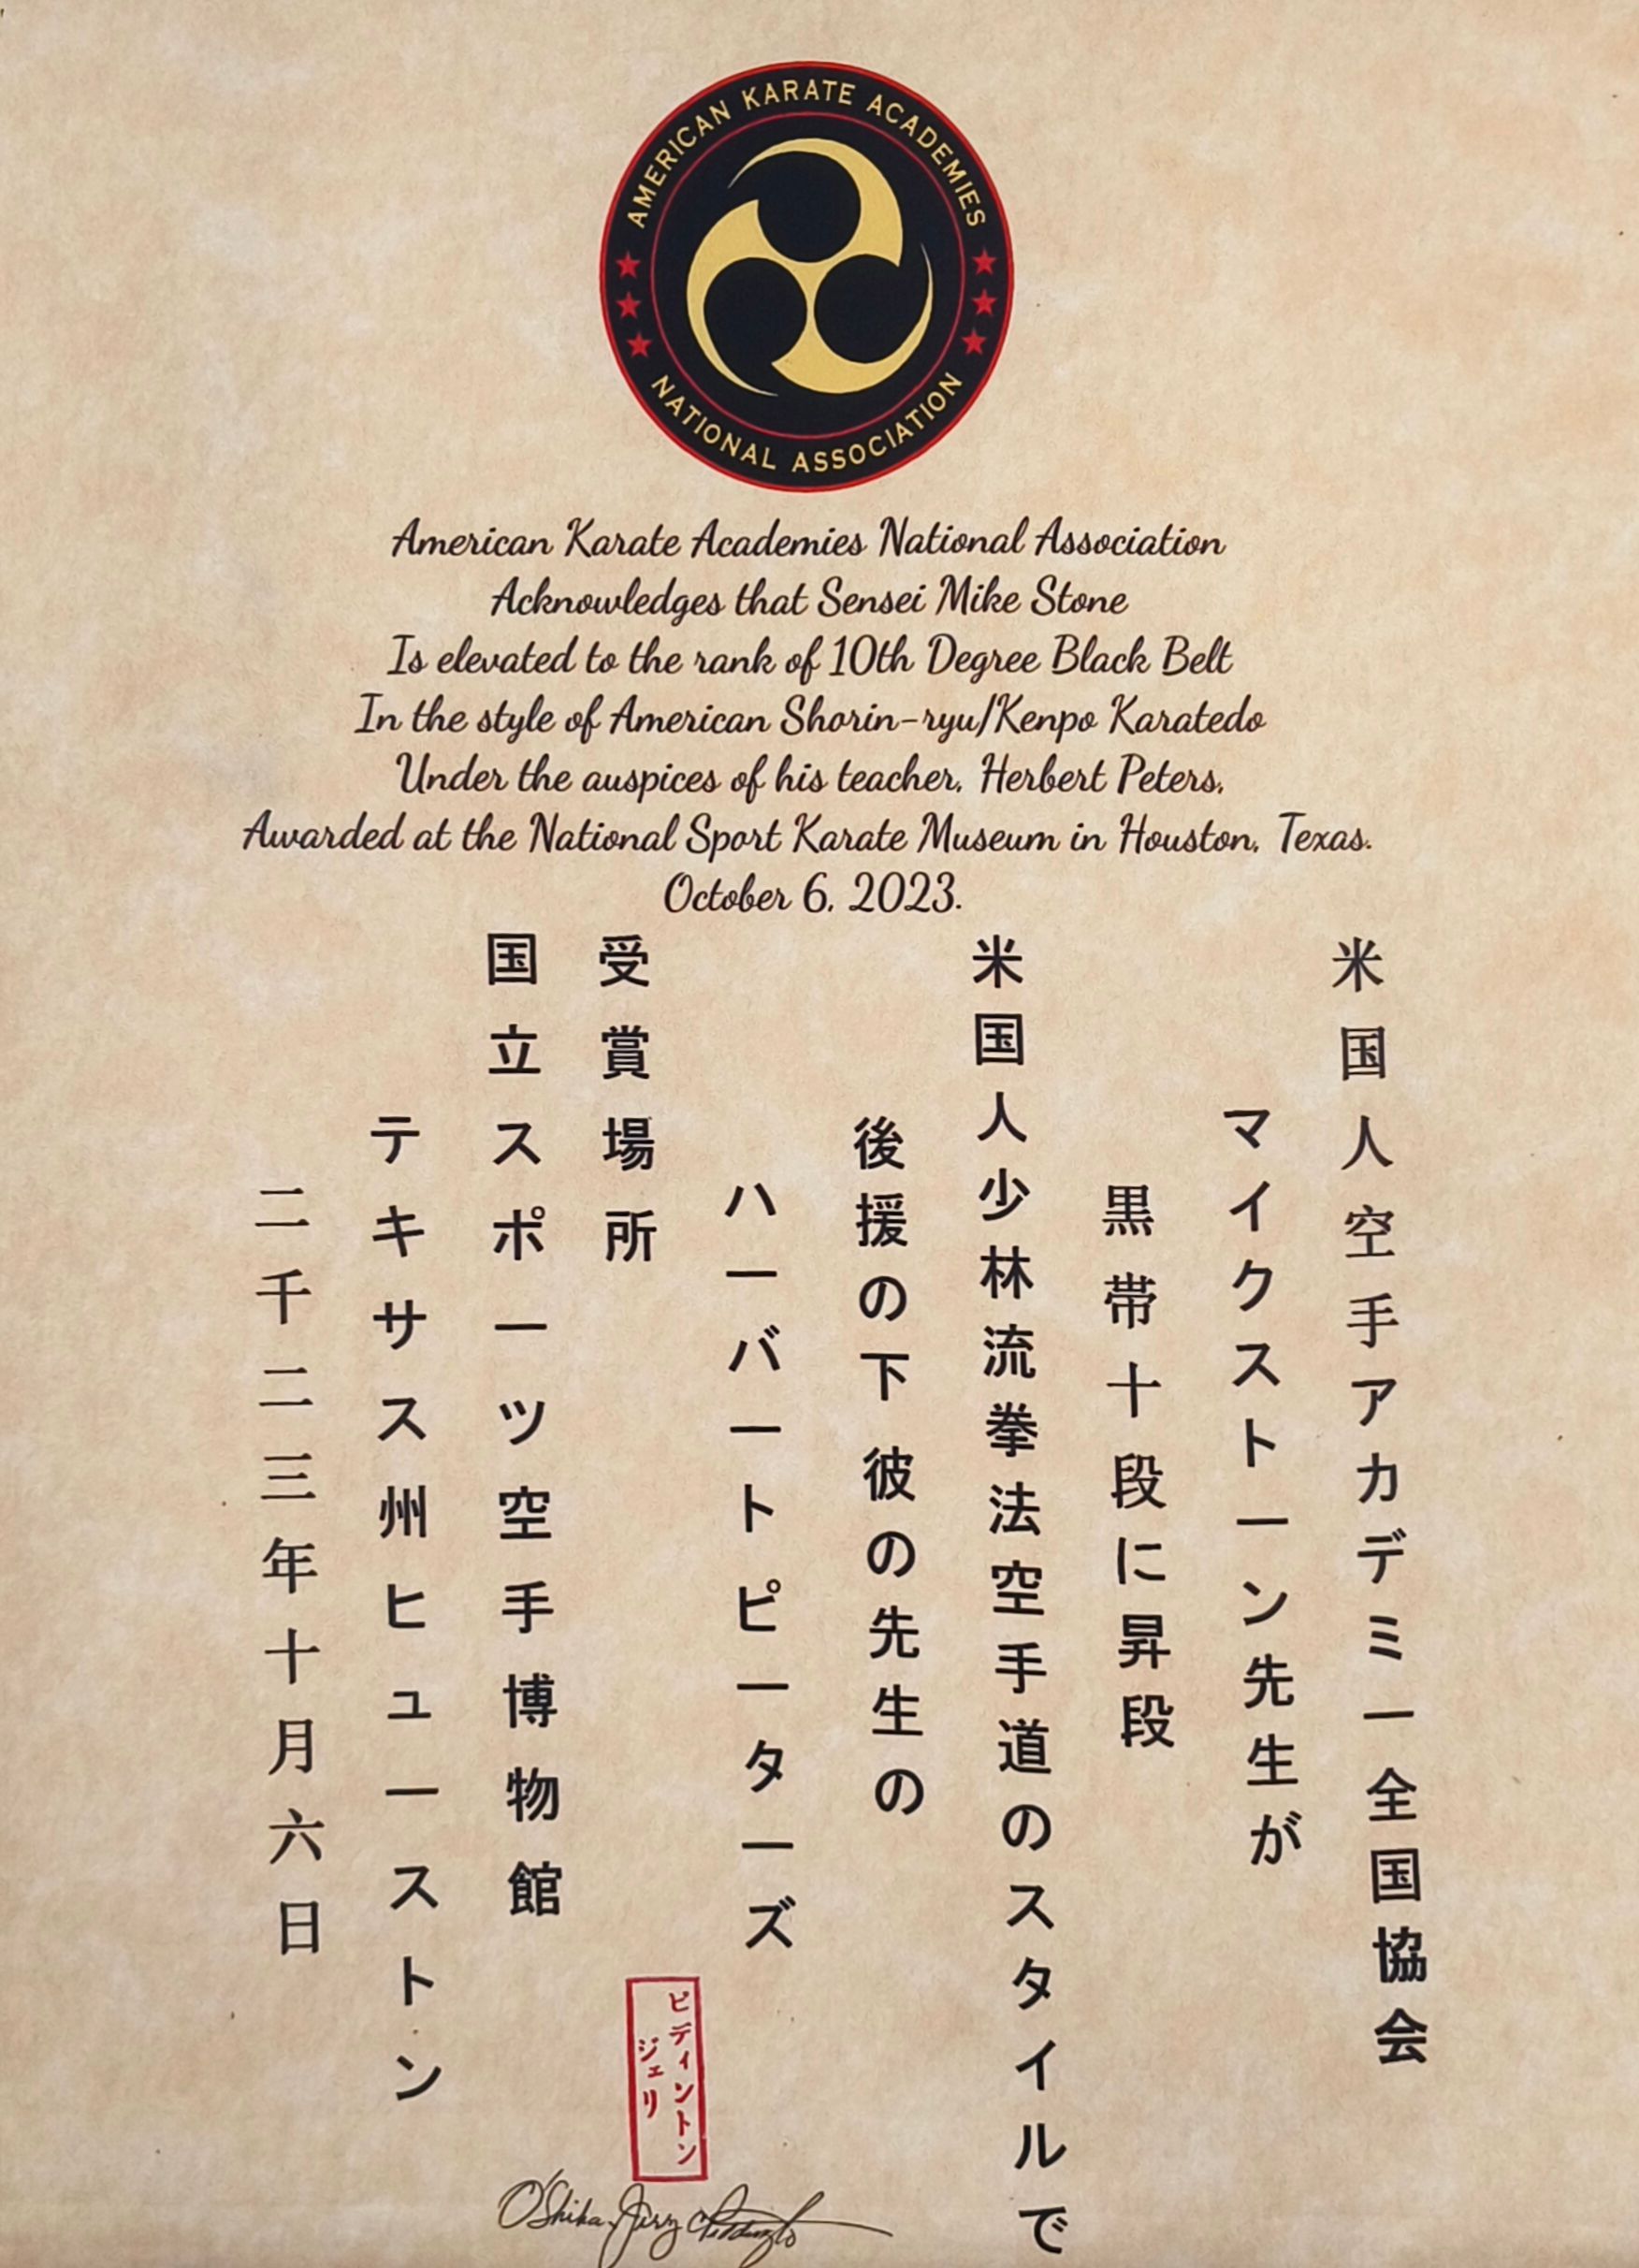 AMERICAN KARATE ACADEMIES
NATIONAL ASSOCIATION
American Karate Academies National Association
Acknowledges that Sensei Mike Stone
Is elevated to the rank of 10th Degree Black Belt
In the style of American Shorin-ryu/Kenpo Karatedo
Under the auspices of his teacher, Herbert Peters,
Awarded at the National Sport Karate Museum in Houston, Texas.
October 6, 2023.
米国人空手アカデミー全国協会
マイクストーン先生が
黒帯十段に昇段
米国人少林流拳法空手道のスタイルで
後援の下 彼の先生の
ハーバートピーターズ
受賞場所
国立スポーツ空手博物館
テキサス州ヒューストン
二千二三年十月六日
ピディントン
ジェリ
O'Shiha Jerry Piddington